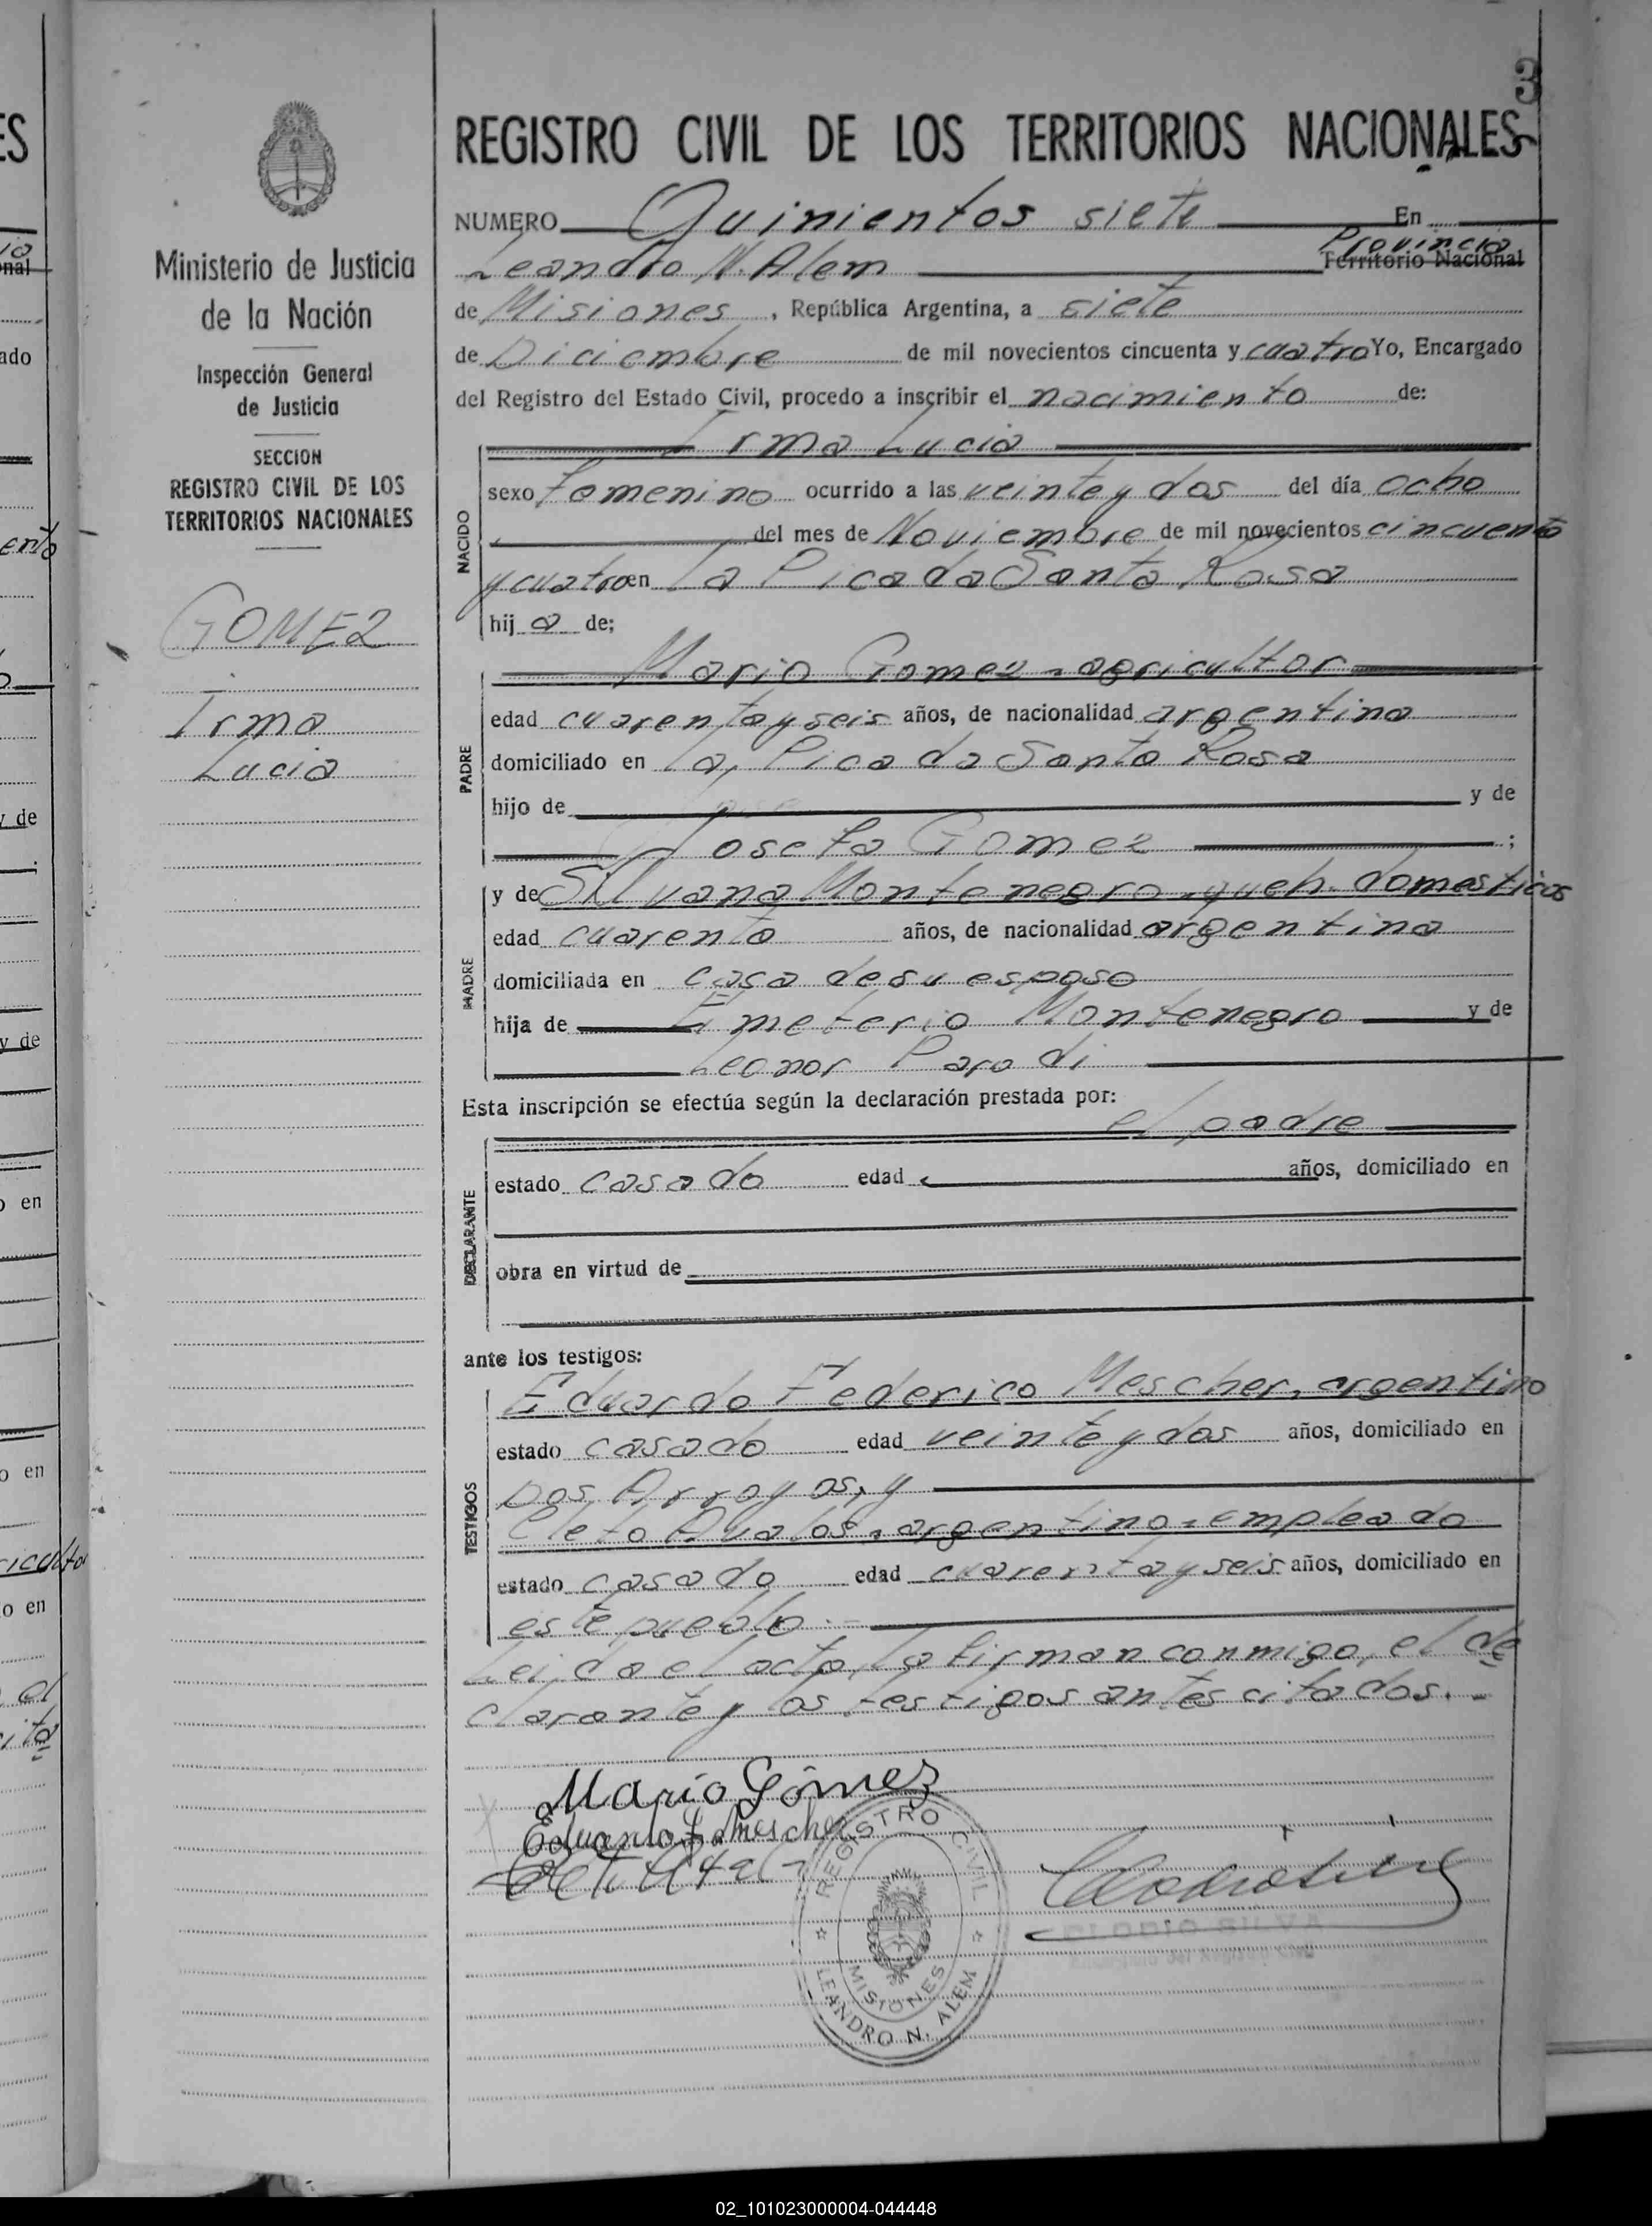 3
REGISTRO CIVIL DE LOS TERRITORIOS NACIONALES
Ministerio de Justicia
de la Nación
Inspección General
de Justicia
SECCION
REGISTRO CIVIL DE LOS
TERRITORIOS NACIONALES
GOMEZ
Irma
Lucia
NUMERO Quinientos siete En
Provincia
Leandro N. Alem Territorio Nacional
de Misiones, República Argentina, a siete
de Diciembre de mil novecientos cincuenta y cuatro Yo, Encargado
del Registro del Estado Civil, procedo a inscribir el nacimiento de:
NACIDO
Irma Lucia
sexo femenino ocurrido a las veinte y dos del día ocho
del mes de Noviembre de mil novecientos cincuenta
y cuatro en la Picada Santa Rosa
hij a de;
PADRE
Mario Gomez - agricultor
edad cuarenta y seis años, de nacionalidad argentina
domiciliado en la, Picada Santa Rosa
hijo de y de
Josefa Gomez ;
MADRE
y de Silvana Montenegro - queh. domesticos
edad cuarenta años, de nacionalidad argentina
domiciliada en casa de su esposo
hija de Emeterio Montenegro y de
Leonor Parodi
Esta inscripción se efectúa según la declaración prestada por:
el padre
DECLARANTE
estado casado edad años, domiciliado en
obra en virtud de
ante los testigos:
TESTIGOS
Eduardo Federico Mescher, argentino
estado casado edad veinte y dos años, domiciliado en
Dos Arroyos, y
Cleto Avalos, argentino - empleado
estado casado edad cuarenta y seis años, domiciliado en
este pueblo.-
Leida el acta, la firman conmigo, el de
clarante y los testigos antes citados.-
Mario Gómez
Eduardo F. Mescher
REGISTRO CIVIL
MISIONES
LEANDRO N. ALEM
CLODIO SILVA
02_101023000004-044448